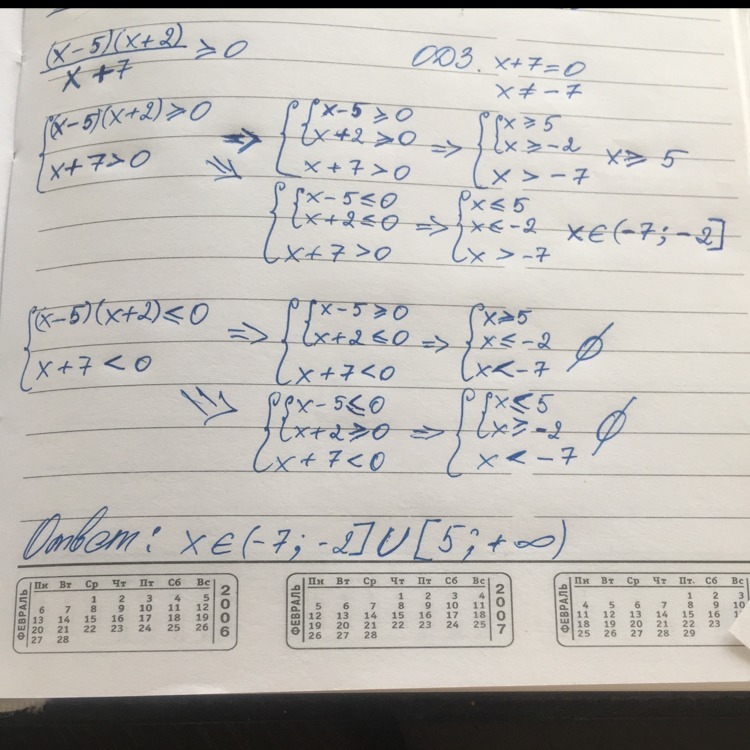 (x-5)(x+2)
x+7
≥0
ОДЗ. x+7=0
x≠-7
{(x-5)(x+2)≥0
x+7>0
=> {{x-5≥0
x+2≥0
x+7>0
=> {{x≥5
x≥-2
x>-7
x≥5
=> {{x-5≤0
x+2≤0
x+7>0
=> {x≤5
x≤-2
x>-7
x∈(-7;-2]
{(x-5)(x+2)≤0
x+7<0
=> {{x-5≥0
x+2≤0
x+7<0
=> {x≥5
x≤-2
x<-7
∅
=> {{x-5≤0
x+2≥0
x+7<0
=> {{x≤5
x≥-2
x<-7
∅
Ответ: x∈(-7;-2]∪[5;+∞)
ФЕВРАЛЬ
Пн Вт Ср Чт Пт Сб Вс
1 2 3 4 5
6 7 8 9 10 11 12
13 14 15 16 17 18 19
20 21 22 23 24 25 26
27 28
2006
ФЕВРАЛЬ
Пн Вт Ср Чт Пт Сб Вс
1 2 3 4
5 6 7 8 9 10 11
12 13 14 15 16 17 18
19 20 21 22 23 24 25
26 27 28
2007
ФЕВРАЛЬ
Пн Вт Ср Чт Пт. Сб Вс
1 2 3
4 5 6 7 8 9 10
11 12 13 14 15 16
18 19 20 21 22 23
25 26 27 28 29